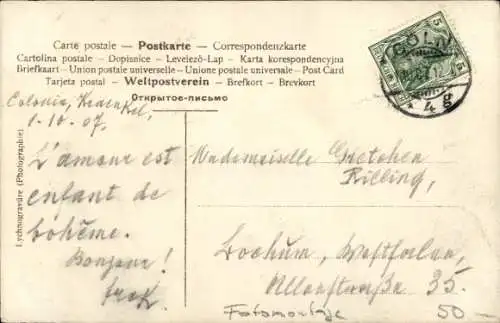 Carte postale — Postkarte — Correspondenzkarte
Cartolina postale — Dopisnice — Levelező-Lap — Karta korespondencyjna
Briefkaart - Union postale universelle - Unione postale universale - Post Card
Tarjeta postal — Weltpostverein — Brefkort — Brevkort
Открытое-письмо
CÖLN
5
4g
Colonia,
1-10-07.
L'amour est
enfant de
bohême.
Bonjour!
Mademoiselle Gretchen
Rilling,
Bochum, Westfalen,
Alleestraße 35.
Fotomontage 50-
Lychnogravüre (Photographie)